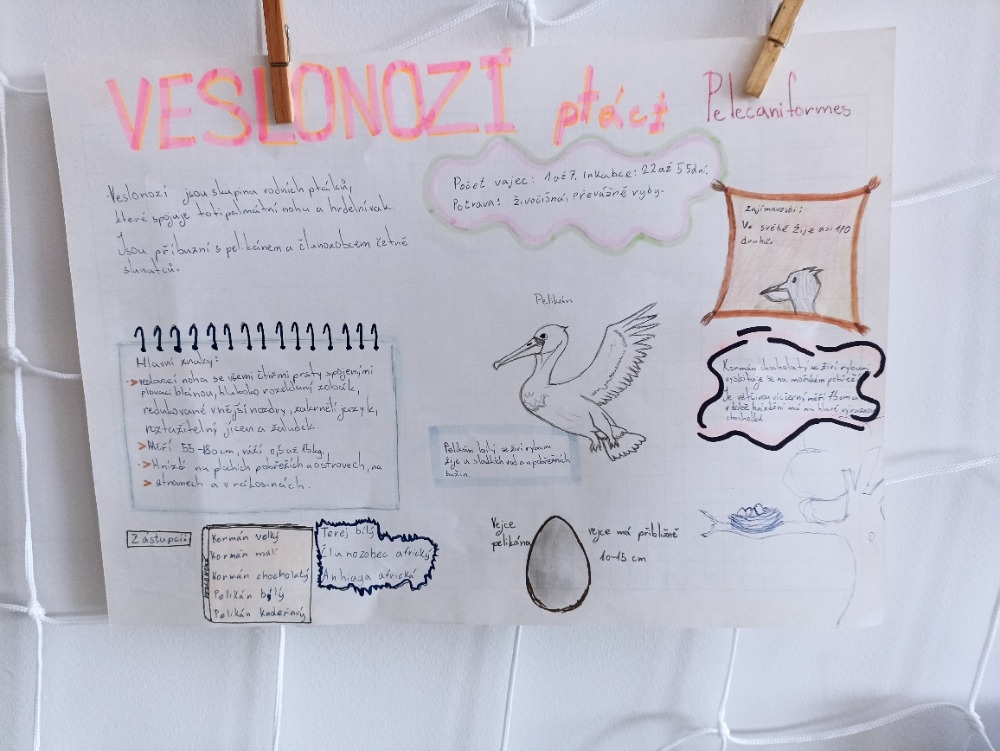 VESLONOZÍ ptáci Pelecaniformes
Veslonozí jsou skupina vodních ptáků,
které spojuje totipalmátní noha a hrdelní vak.
Jsou příbuzní s pelikánem a člunozobcem četně
slunatců.
Počet vajec: 1 až 7. Inkubce: 22 až 55 dní.
Potrava: živočišná, převážně ryby.
Zajímavosti:
Ve světě žije asi 110
druhů.
Pelikán
Hlavní znaky:
veslovací noha se všemi čtyřmi prsty spojenými
plovací blánou, hluboko rozeklaný zobák,
redukované vnější nozdry, zakrnělí jazyk,
roztažitelný jícen a žaludek.
Měří 55-180 cm, váží 0,5 až 15kg
Hnízdí na plochích pobřežích a ostrovech, na
stromech a v rákosinách.
Pelikán bílý se živí rybami
žije u sladkích vod a pobřežních
bažin.
Kormán chocholatý se živí rybami
vyskytuje se na mořském pobřeží
Je většinou černý měří 75cm a
v době hnízdění má na hlavě výraznou
chocholku.
Zástupci:
Kormán velký
Kormán malí
Kormán chocholatý
Pelikán bílý
Pelikán kadeřavý
Terej bílý
Člunozobec africký
Anhinga africká
Vejce
pelikána
vejce má přibližně
10-15 cm